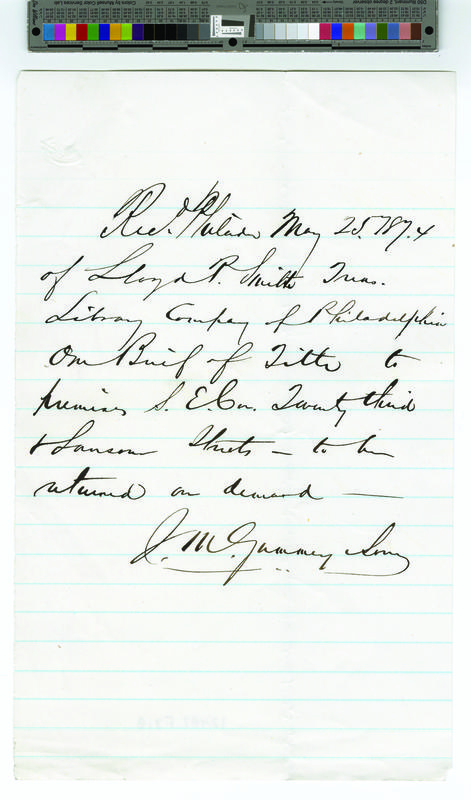 Recd. Philada May 25. 1874
of Lloyd P. Smith Treas.
Library Company of Philadelphia
One Brief of Title to
premises S. E. Cor. Twenty third
& Sansom Streets — to be
returned on demand —
J. M. Gummey Sons